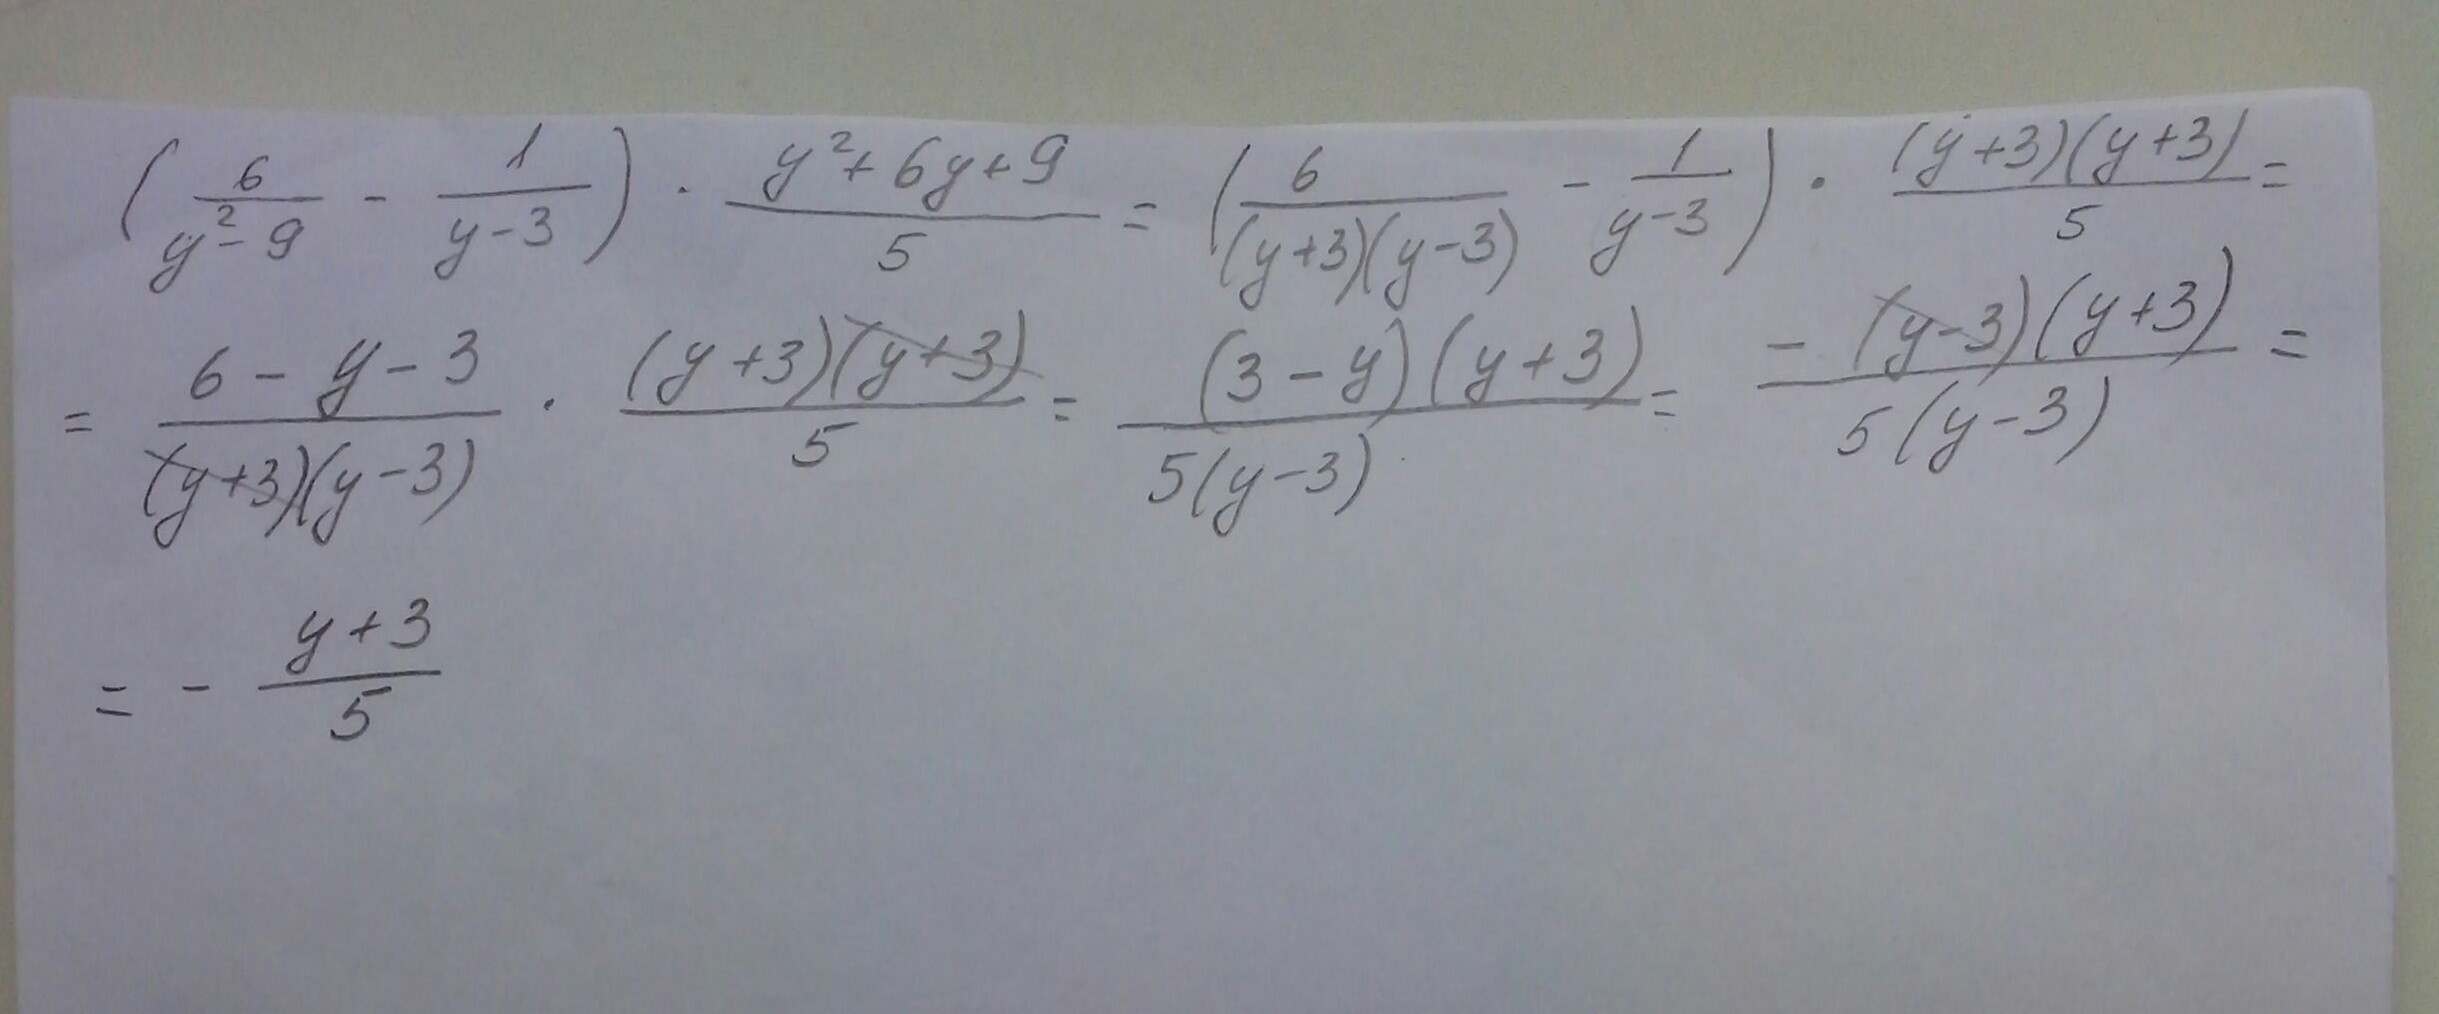 (6/(y²-9) - 1/(y-3)) · (y²+6y+9)/5 = (6/((y+3)(y-3)) - 1/(y-3)) · ((y+3)(y+3))/5 =
= (6-y-3)/((y+3)(y-3)) · ((y+3)(y+3))/5 = ((3-y)(y+3))/(5(y-3)) = (-(y-3)(y+3))/(5(y-3)) =
= - (y+3)/5